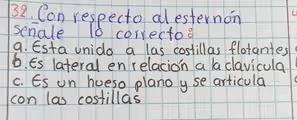 32. Con respecto al esternón
señale lo correcto:
a. Esta unido a las costillas flotantes
b. Es lateral en relación a la clavícula
c. Es un hueso plano y se articula
con las costillas